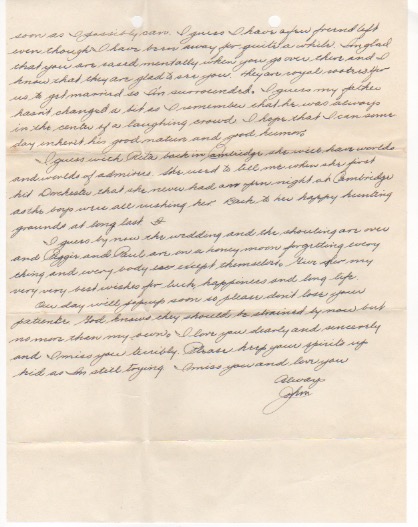 soon as I possibly can. I guess I have a few friends left
even though I have been away for quite a while. I'm glad
that you are eased mentally when you go over there and I
know that they are glad to see you. They are royal rooters for
us to get married so I'm surrounded. I guess my father
hasn't changed a bit as I remember that he was always
in the center of a laughing crowd. I hope that I can some
day inherit his good nature and good humor.
I guess with Rita back in Cambridge she will have worlds
and worlds of admirers. She used to tell me when she first
hit Dorchester that she never had am open night at Cambridge
as the boys were all rushing her. Back to her happy hunting
grounds at long last
I guess by now the wedding and the shouting are over
and Peggie and Paul are on a honey moon forgetting every
thing and every body except themselves. Give for my
very very best wishes for luck, happiness and long life
Our day will pop up soon so please don't lose your
patience. God knows they should be strained by now but
no more than my own. I love you dearly and sincerely
and I miss you terribly. Please keep your spirits up
kid as I'm still trying. I miss you and love you
Always
John